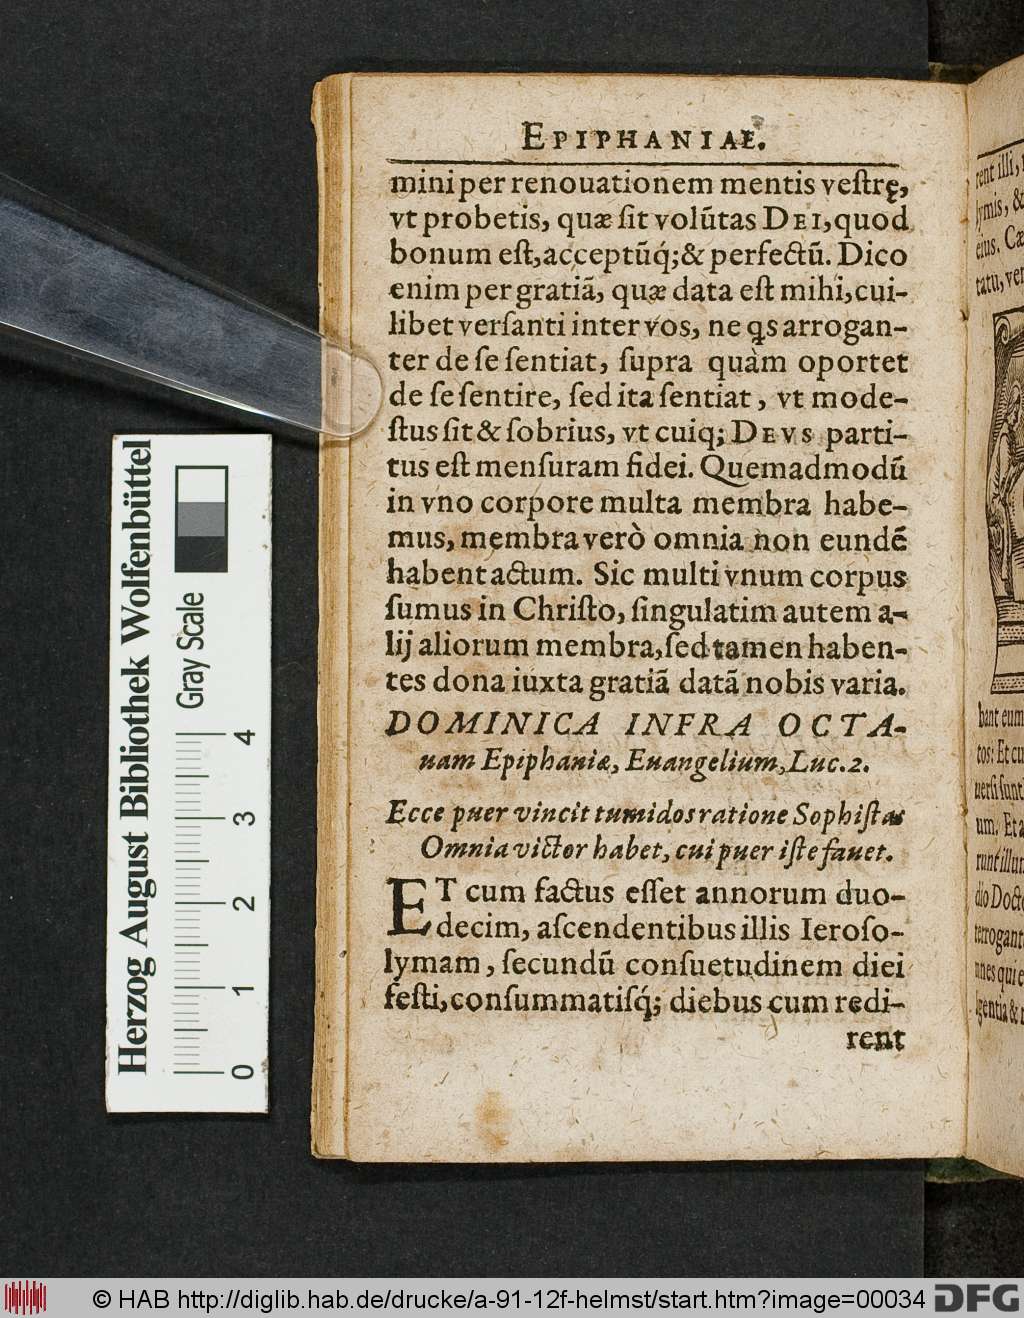 EPIPHANIAE.
mini per renouationem mentis veſtrę,
vt probetis, quæ ſit volũtas DEI, quod
bonum eſt, acceptũq́;& perfectũ. Dico
enim per gratiã, quæ data eſt mihi, cui-
libet verſanti inter vos, ne qs arrogan-
ter de ſe ſentiat, ſupra quàm oportet
de ſe ſentire, ſed ita ſentiat, vt mode-
ſtus ſit & ſobrius, vt cuiq; DEVS parti-
tus eſt menſuram fidei. Quemadmodũ
in vno corpore multa membra habe-
mus, membra verò omnia non eundẽ
habent actum. Sic multi vnum corpus
ſumus in Chriſto, ſingulatim autem a-
lij aliorum membra, ſed tamen haben-
tes dona iuxta gratiã datã nobis varia.
DOMINICA INFRA OCTA-
uam Epiphaniæ, Euangelium, Luc.2.
Ecce puer vincit tumidos ratione Sophiſtas
Omnia victor habet, cui puer iſte fauet.
ET cum factus eſſet annorum duo-
decim, aſcendentibus illis Ieroſo-
lymam, ſecundũ conſuetudinem diei
feſti, conſummatiſq́; diebus cum redi-
rent
rent illi,
lymis, &
eius. Cæ
tatu, ver
bant eum
tos: Et cu
uerſi ſunt
um. Et a
runt illum
dio Docto
terrogant
mnes qui e
lgentia &
Herzog August Bibliothek Wolfenbüttel
Gray Scale
0 1 2 3 4
© HAB http://diglib.hab.de/drucke/a-91-12f-helmst/start.htm?image=00034
DFG